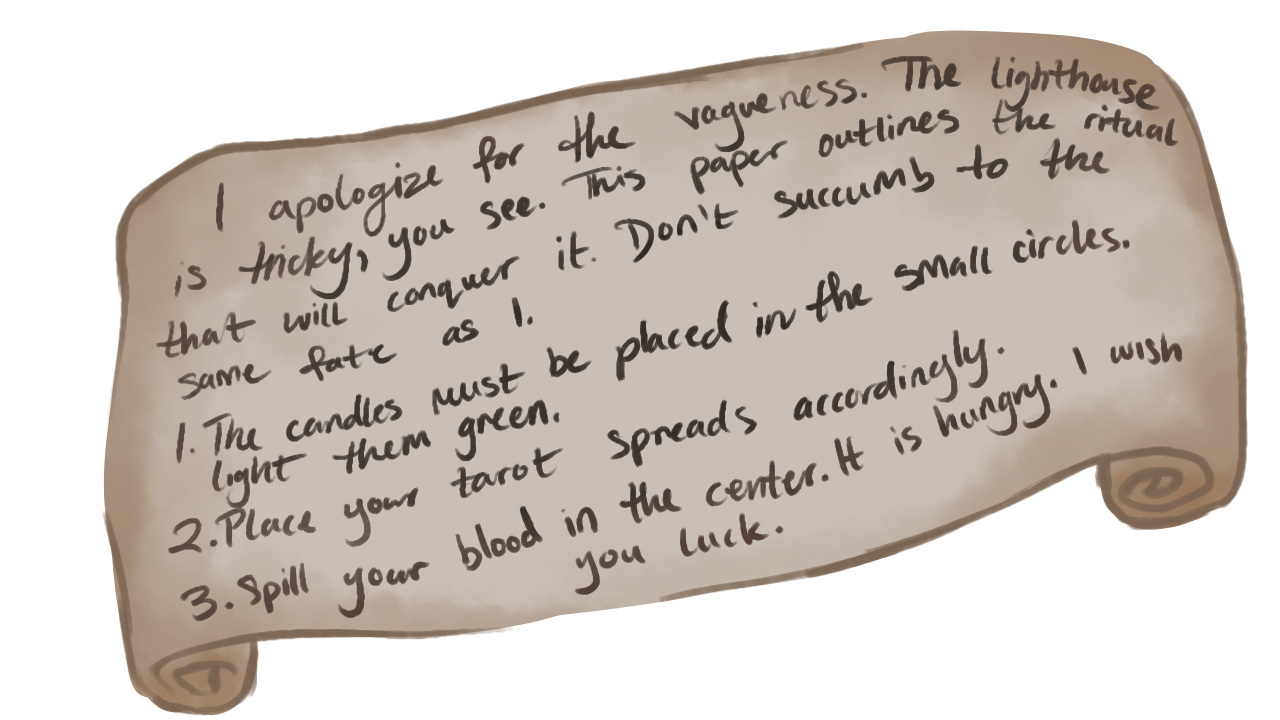 I apologize for the vagueness. The lighthouse
is tricky, you see. This paper outlines the ritual
that will conquer it. Don't succumb to the
same fate as I.
1. The candles must be placed in the small circles.
light them green.
2. Place your tarot spreads accordingly.
3. Spill your blood in the center. It is hungry. I wish
you luck.